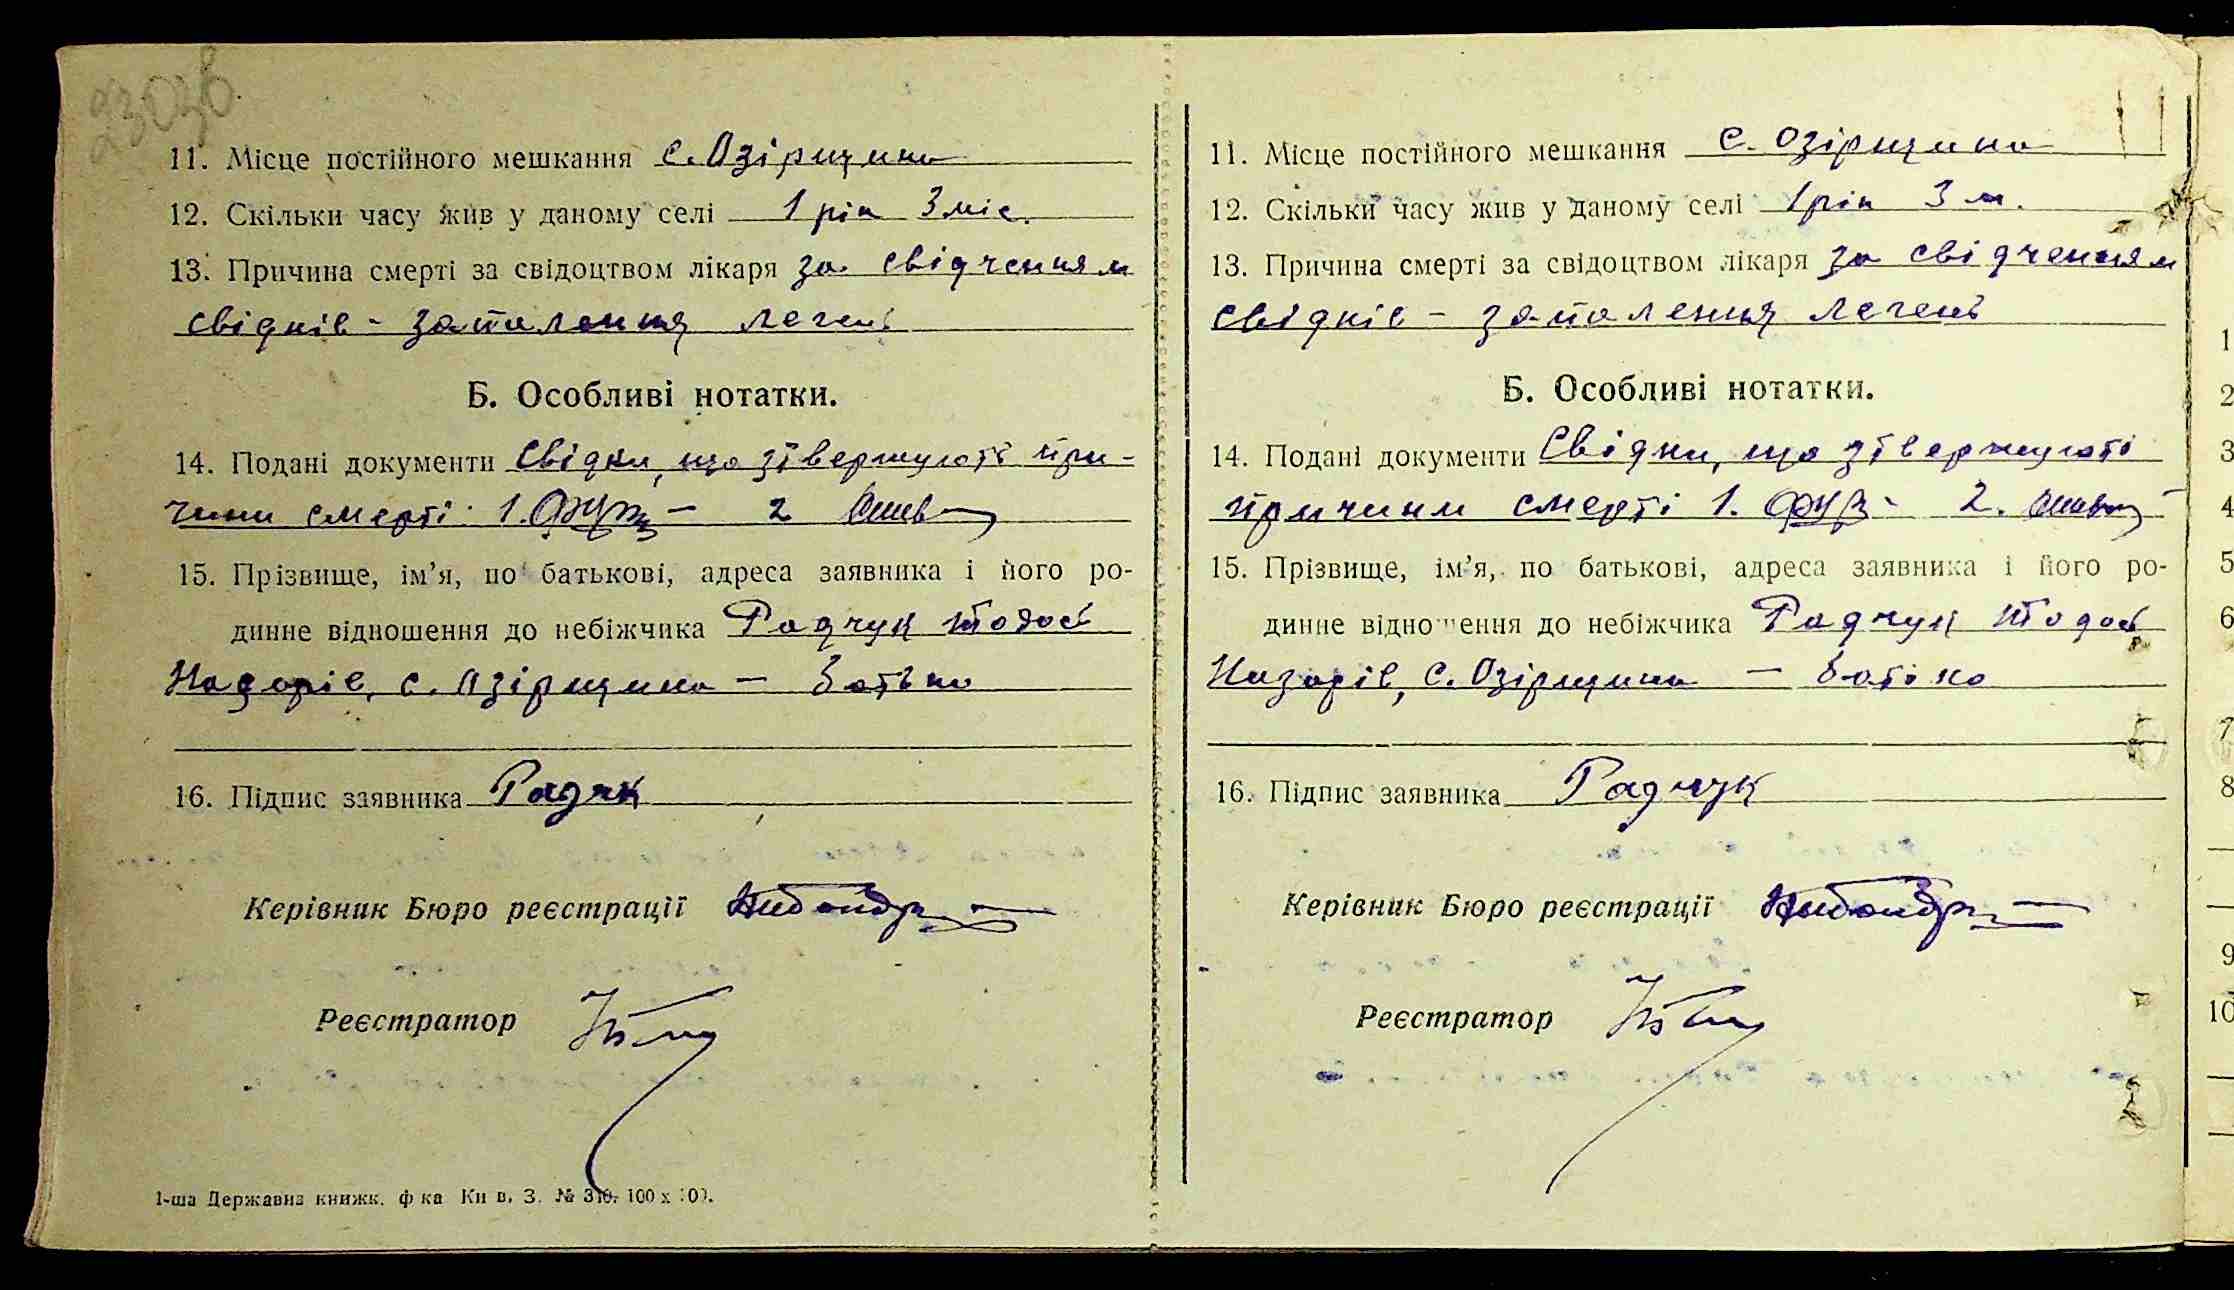 11. Місце постійного мешкання с. Озірщина
12. Скільки часу жив у даному селі 1 рік 3 міс.
13. Причина смерті за свідоцтвом лікаря за свідченням
свідків - запалення легень
Б. Особливі нотатки.
14. Подані документи Свідки, що зтверджують при-
чини смерті 1. - 2
15. Прізвище, ім’я, по батькові, адреса заявника і його ро-
динне відношення до небіжчика Радчук Тодось
Назарів, с. Озірщина - батько
16. Підпис заявника Радчк
Керівник Бюро реєстрації
Реєстратор
1-ша Державна книжк. ф ка Ки в. З. № 310. 100 х
11. Місце постійного мешкання с. Озірщина
12. Скільки часу жив у даному селі 1 рік 3 м.
13. Причина смерті за свідоцтвом лікаря за свідченням
свідків - запалення легень
Б. Особливі нотатки.
14. Подані документи Свідки, що зтверджують
причини смерті 1. - 2.
15. Прізвище, ім’я, по батькові, адреса заявника і його ро-
динне відношення до небіжчика Радчук Тодось
Назарів, с. Озірщина - батько
16. Підпис заявника Радчук
Керівник Бюро реєстрації
Реєстратор
1
2
3
4
5
6
7
8
9
10